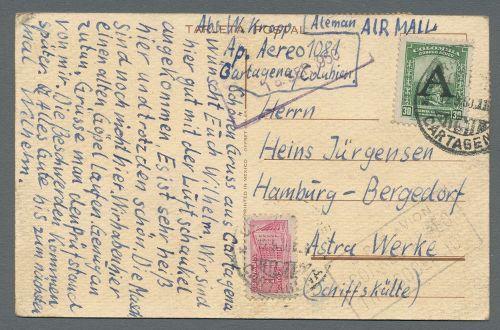 TARJETA POSTAL
Abs. W. Kropp
Aleman
AIR MAIL
Ap. Aereo 1081
Cartagena / Columbien
COLOMBIA
CORREO AEREO
A
30 30
CARTAGENA
Herrn
Heins Jürgensen
Hamburg - Bergedorf
Astra Werke
(Schiffskülte)
Schönen Gruss aus Cartagena
wünscht Euch Wilhelm. Wir sind
hier gut mit der Luftschaukel
angekommen. Es ist sehr heiß
hier und trotzdem schön. Die
Sind noch nicht hier. Wir haben hier
einen alten laufen. Genug an
zutun. Grüsse man den Prüfstand
von mir. Die Beschwerden kommen
später. Alles Gute bis zum nächsten
mal Wilhelm.